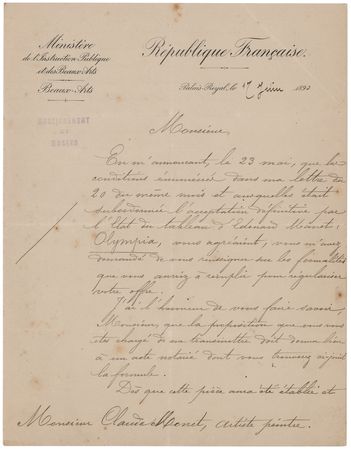 Ministère
de l'Instruction Publique
et des Beaux-Arts
Beaux-Arts
République Française.
Palais-Royal, le 17 Juin 1890
MUSÉES
Monsieur,
En m'annonçant, le 23 mai, que les
conditions énumérées dans ma lettre du
20 du même mois et auxquelles était
subordonnée l'acceptation définitive par
l'Etat du tableau d'Edouard Manet:
Olympia, vous agréaient, vous m'avez
demandé de vous renseigner sur les formalités
que vous auriez à remplir pour régulariser
votre offre.
J'ai l'honneur de vous faire savoir,
Monsieur, que la proposition que vous vous
êtes chargé de me transmettre doit donner lieu
à un acte notarié dont vous trouverez ci-joint
la formule.
Dès que cette pièce aura été établie et
Monsieur Claude Monet, artiste peintre.